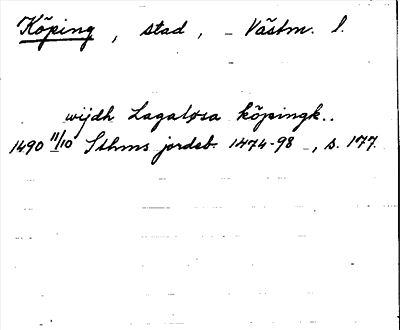 Köping, stad, - Västm. l.
wijdh Lagaløsa köpingk..
1490 11/10 Sthms jordeb. 1474-98 -, s. 177.